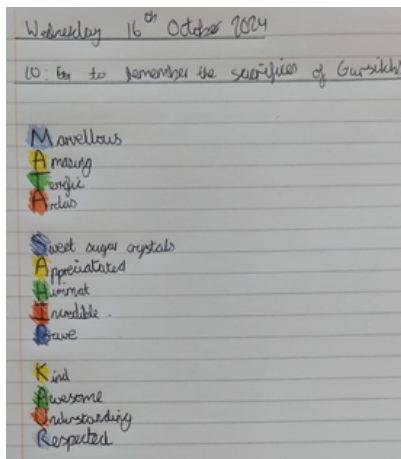 Wednesday 16th October 2024
LO: to remember the sacrifices of Gursikh
Marvellous
Amazing
Terrific
Ardas
Sweet sugar crystals
Appreciatated
Himmat
Incredible.
Brave
Kind
Awesome
Understanding
Respected